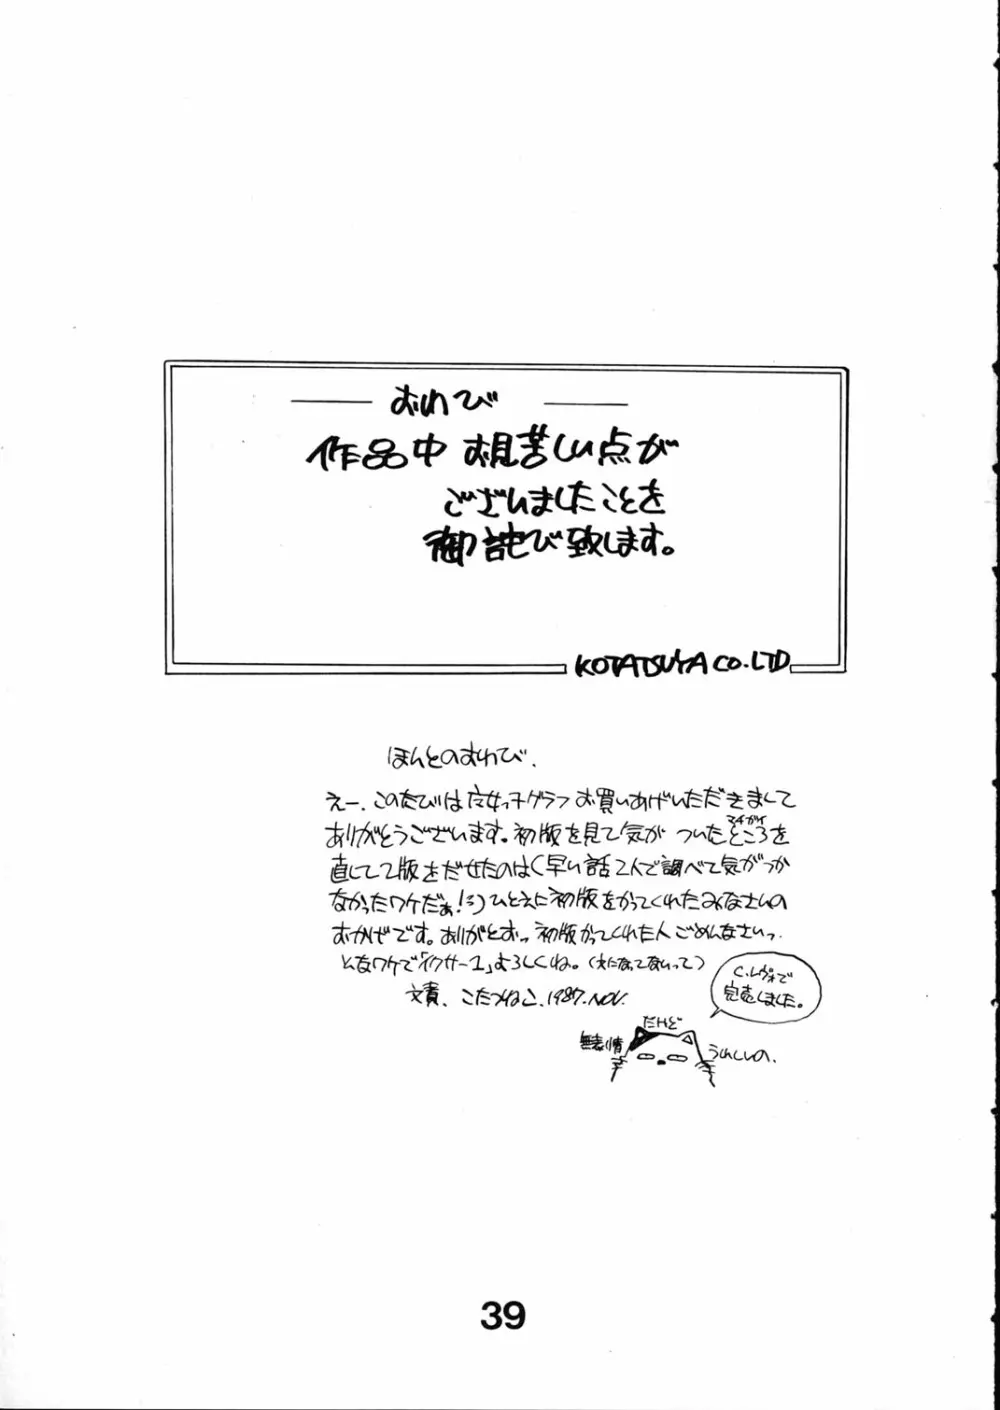 おわび
作品中お見苦しい点が
ございましたことを
御詫び致します。
KOTATSUYA CO.LTD
ほんとのおわび.
えー、このたびは グラフお買いあげいただきまして
ありがとうございます。初版を見て気がついたところを
マチガイ
直して2版をだせたのは(早い話2人で調べて気がつか
なかったワケだぁ!ミ)ひとえに初版をかってくれたみなさんの
おかげです。ありがとおっ 初版かってくれた人ごめんなさいっ
んなワケで「イクサー1」よろしくね。(えになってないって)
文責、こたつねこ.1987.NOV.
C.レヴォで
完売しました。
だけど
無表情
うれしいの.
39